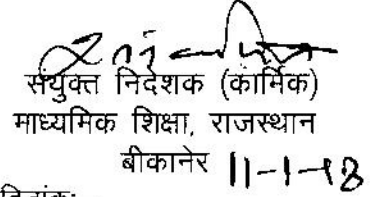 संयुक्त निदेशक (कार्मिक)
माध्यमिक शिक्षा, राजस्थान
बीकानेर 11-1-18
दिनांक: